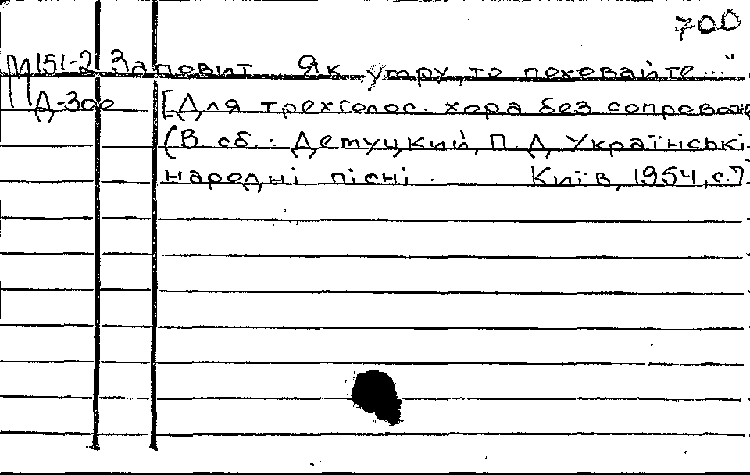 700
М151-2 Заповит. Як умру, то поховайте..."
Д-300 [Для трехголос. хора без сопровож
(В сб.: Демуцкий, П.Д. Українські
народні пісні. Київ, 1954, с.7